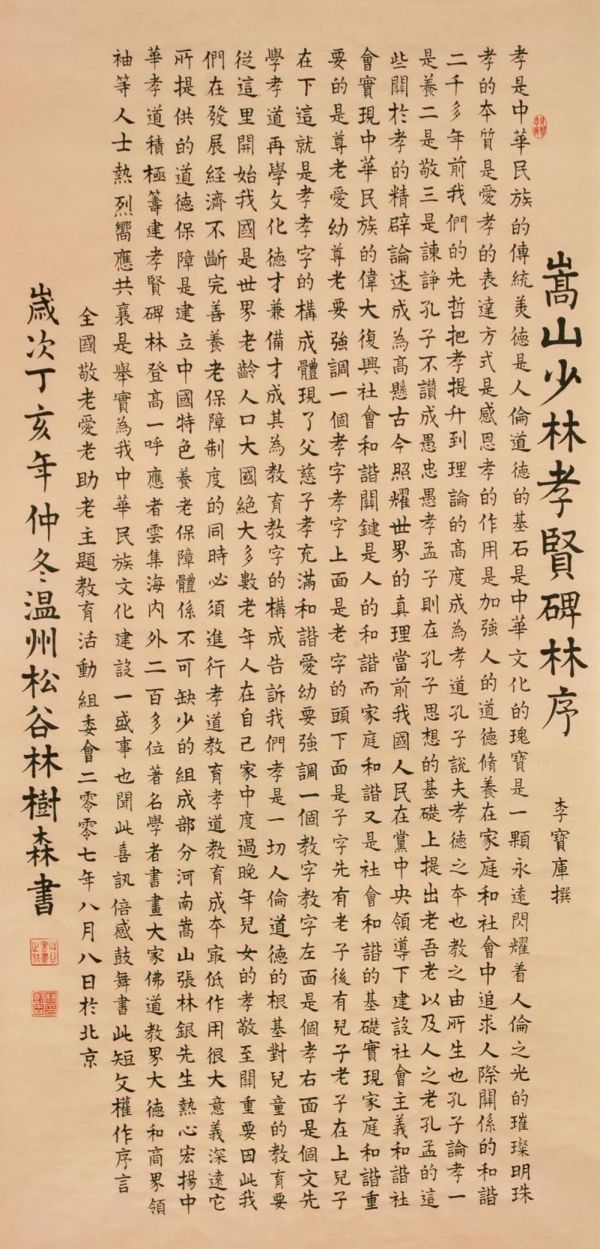 嵩山少林孝賢碑林序
李寶庫撰
孝是中華民族的傳統美德是人倫道德的基石是中華文化的瑰寶是一顆永遠閃耀着人倫之光的璀璨明珠
孝的本質是愛孝的表達方式是感恩孝的作用是加強人的道德脩養在家庭和社會中追求人際關係的和諧
二千多年前我們的先哲把孝提升到理論的高度成為孝道孔子說夫孝德之本也教之由所生也孔子論孝一
是養二是敬三是諫諍孔子不讚成愚忠愚孝孟子則在孔子思想的基礎上提出老吾老以及人之老孔孟的這
些關於孝的精辟論述成為高懸古今照耀世界的真理當前我國人民在黨中央領導下建設社會主義和諧社
會實現中華民族的偉大復興社會和諧關鍵是人的和諧而家庭和諧又是社會和諧的基礎實現家庭和諧重
要的是尊老愛幼尊老要強調一個孝字孝字上面是老字的頭下面是子字先有老子後有兒子老子在上兒子
在下這就是孝孝字的構成體現了父慈子孝充滿和諧愛幼要強調一個教字教字左面是個孝右面是個文先
學孝道再學文化德才兼備才成其為教育教字的構成告訴我們孝是一切人倫道德的根基對兒童的教育要
從這里開始我國是世界老齡人口大國絕大多數老年人在自己家中度過晚年兒女的孝敬至關重要因此我
們在發展經濟不斷完善養老保障制度的同時必須進行孝道教育孝道教育成本最低作用很大意義深遠它
所提供的道德保障是建立中國特色養老保障體係不可缺少的組成部分河南嵩山張林銀先生熱心宏揚中
華孝道積極籌建孝賢碑林登高一呼應者雲集海內外二百多位著名學者書畫大家佛道教界大德和商界領
袖等人士熱烈嚮應共襄是舉實為我中華民族文化建設一盛事也聞此喜訊倍感鼓舞書此短文權作序言
全國敬老愛老助老主題教育活動組委會二零零七年八月八日於北京
歲次丁亥年仲冬温州松谷林樹森書